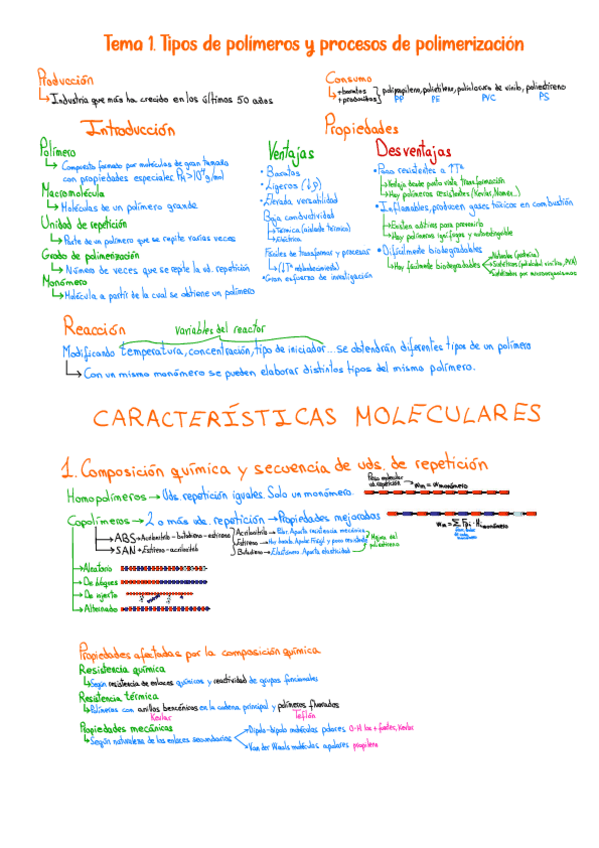 Tema 1. Tipos de polímeros y procesos de polimerización
Producción
Industria que más ha crecido en los últimos 50 años
Consumo
+baratos
+producidos
polipropileno, polietileno, policloruro de vinilo, poliestireno
PP PE PVC PS
Introducción
Polímero
Compuesto formado por moléculas de gran tamaño
con propiedades especiales
Macromolécula
Moléculas de un polímero grande
Unidad de repetición
Parte de un polímero que se repite varias veces
Grado de polimerización
Número de veces que se repite la ud. repetición
Monómero
Molécula a partir de la cual se obtiene un polímero
Propiedades
Ventajas
• Baratos
• Ligeros (↓ρ)
• Elevada versatilidad
Baja conductividad
Térmica (aislante térmico)
Eléctrica
Fáciles de transformar y procesar
(↓Tª reblandecimiento)
•Gran esfuerzo de investigación
Desventajas
•Poco resistentes a ↑Tª
Ventaja desde punto vista transformación
Hay polímeros resistentes (Kevlar, Nomex...)
•Inflamables, producen gases tóxicos en combustión
Existen aditivos para prevenirlo
Hay polímeros ignífugos y autoextinguible
•Difícilmente biodegradables
Hay fácilmente biodegradables
Naturales (proteína)
Sintéticos (polialcohol vinílico, PVA)
Sintetizados por microorganismos
Reacción
variables del reactor
Modificando temperatura, concentración, tipo de iniciador... se obtendrán diferentes tipos de un polímero
Con un mismo monómero se pueden elaborar distintos tipos del mismo polímero.
CARACTERÍSTICAS MOLECULARES
1. Composición química y secuencia de uds. de repetición
Homopolímeros → Uds. repetición iguales. Solo un monómero.
Peso molecular
ud. repetición
Copolímeros → 2 o más uds. repetición → Propiedades mejoradas
ABS → Acrilonitrilo - butadieno - estireno
SAN → Estireno - acrilonitrilo
Acrilonitrilo → Polar. Aporta resistencia mecánica
Estireno →
Butadieno → Elastómero. Aporta elasticidad
Mejora del
poliestireno
Aleatorio
De bloques
De injerto
Alternado
Propiedades afectadas por la composición química
Resistencia química
Según resistencia de enlaces químicos y reactividad de grupos funcionales
Resistencia térmica
Polímeros con anillos bencénicos en la cadena principal y polímeros fluorados
Kevlar Teflón
Propiedades mecánicas
Según naturaleza de los enlaces secundarios
Dipolo-dipolo moléculas polares O-H los + fuertes, Kevlar
Van der Waals moléculas apolares propileno